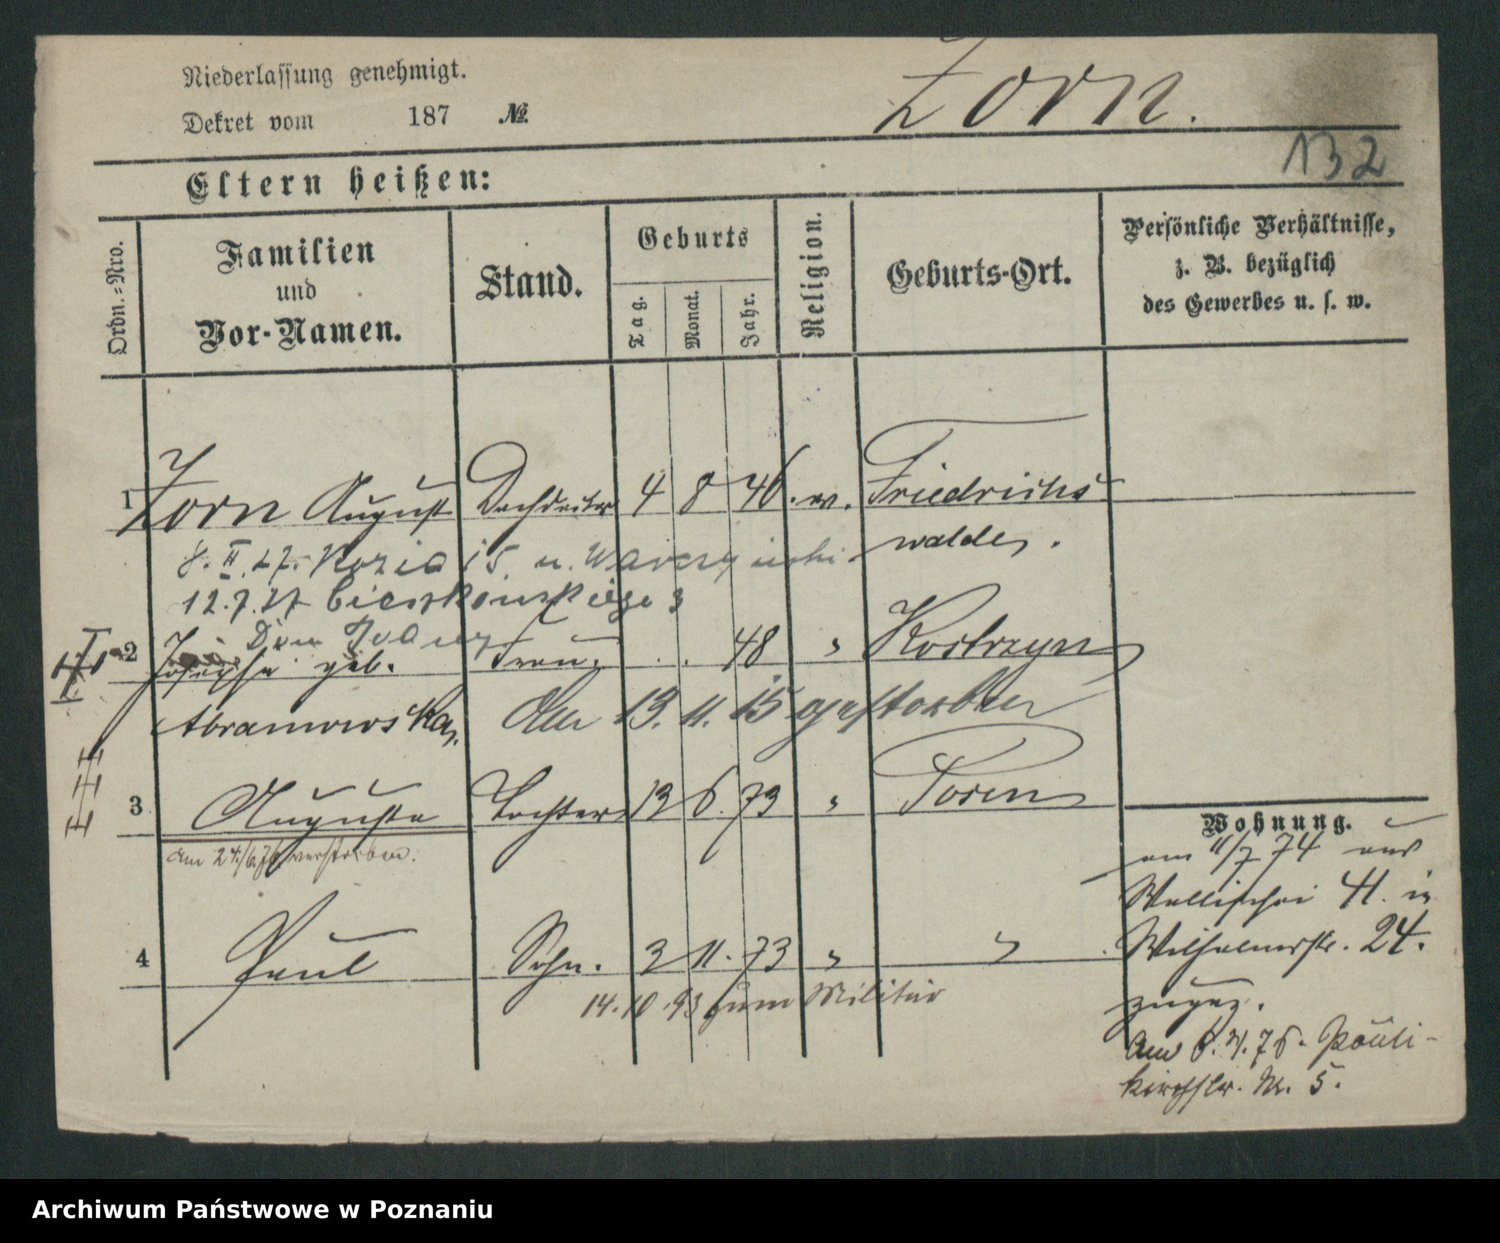 Niederlassung genehmigt.
Zorn.
Dekret vom 187 №
132
Eltern heißen:
Ordn.-Nro.
Familien
und
Vor-Namen.
Stand.
Geburts
Tag.
Monat.
Jahr.
Religion.
Geburts-Ort.
Persönliche Verhältnisse,
z. B. bezüglich
des Gewerbes u. s. w.
1 Zorn August Dachdecker 4 8 46. ev. Friedrichs
walde.
8. II. 27. Kozia 15 u.
12.7.27
Dom
2 Josepha geb. Frau. 48 " Kostrzyn
Abramowska. Am 13. 11. 15 gestorben
3 Auguste Tochter 13 6. 73 " Posen
am 24/6.76 verstorben.
4 Paul Sohn. 3 11. 73 " "
14.10.93 zum Militär
Wohnung.
am 11/7 74 aus
Wallischei 41. in
Wilhelmstr. 24.
zugez.
Am 6. 4. 76. Pauli-
kirchstr. Nr. 5.